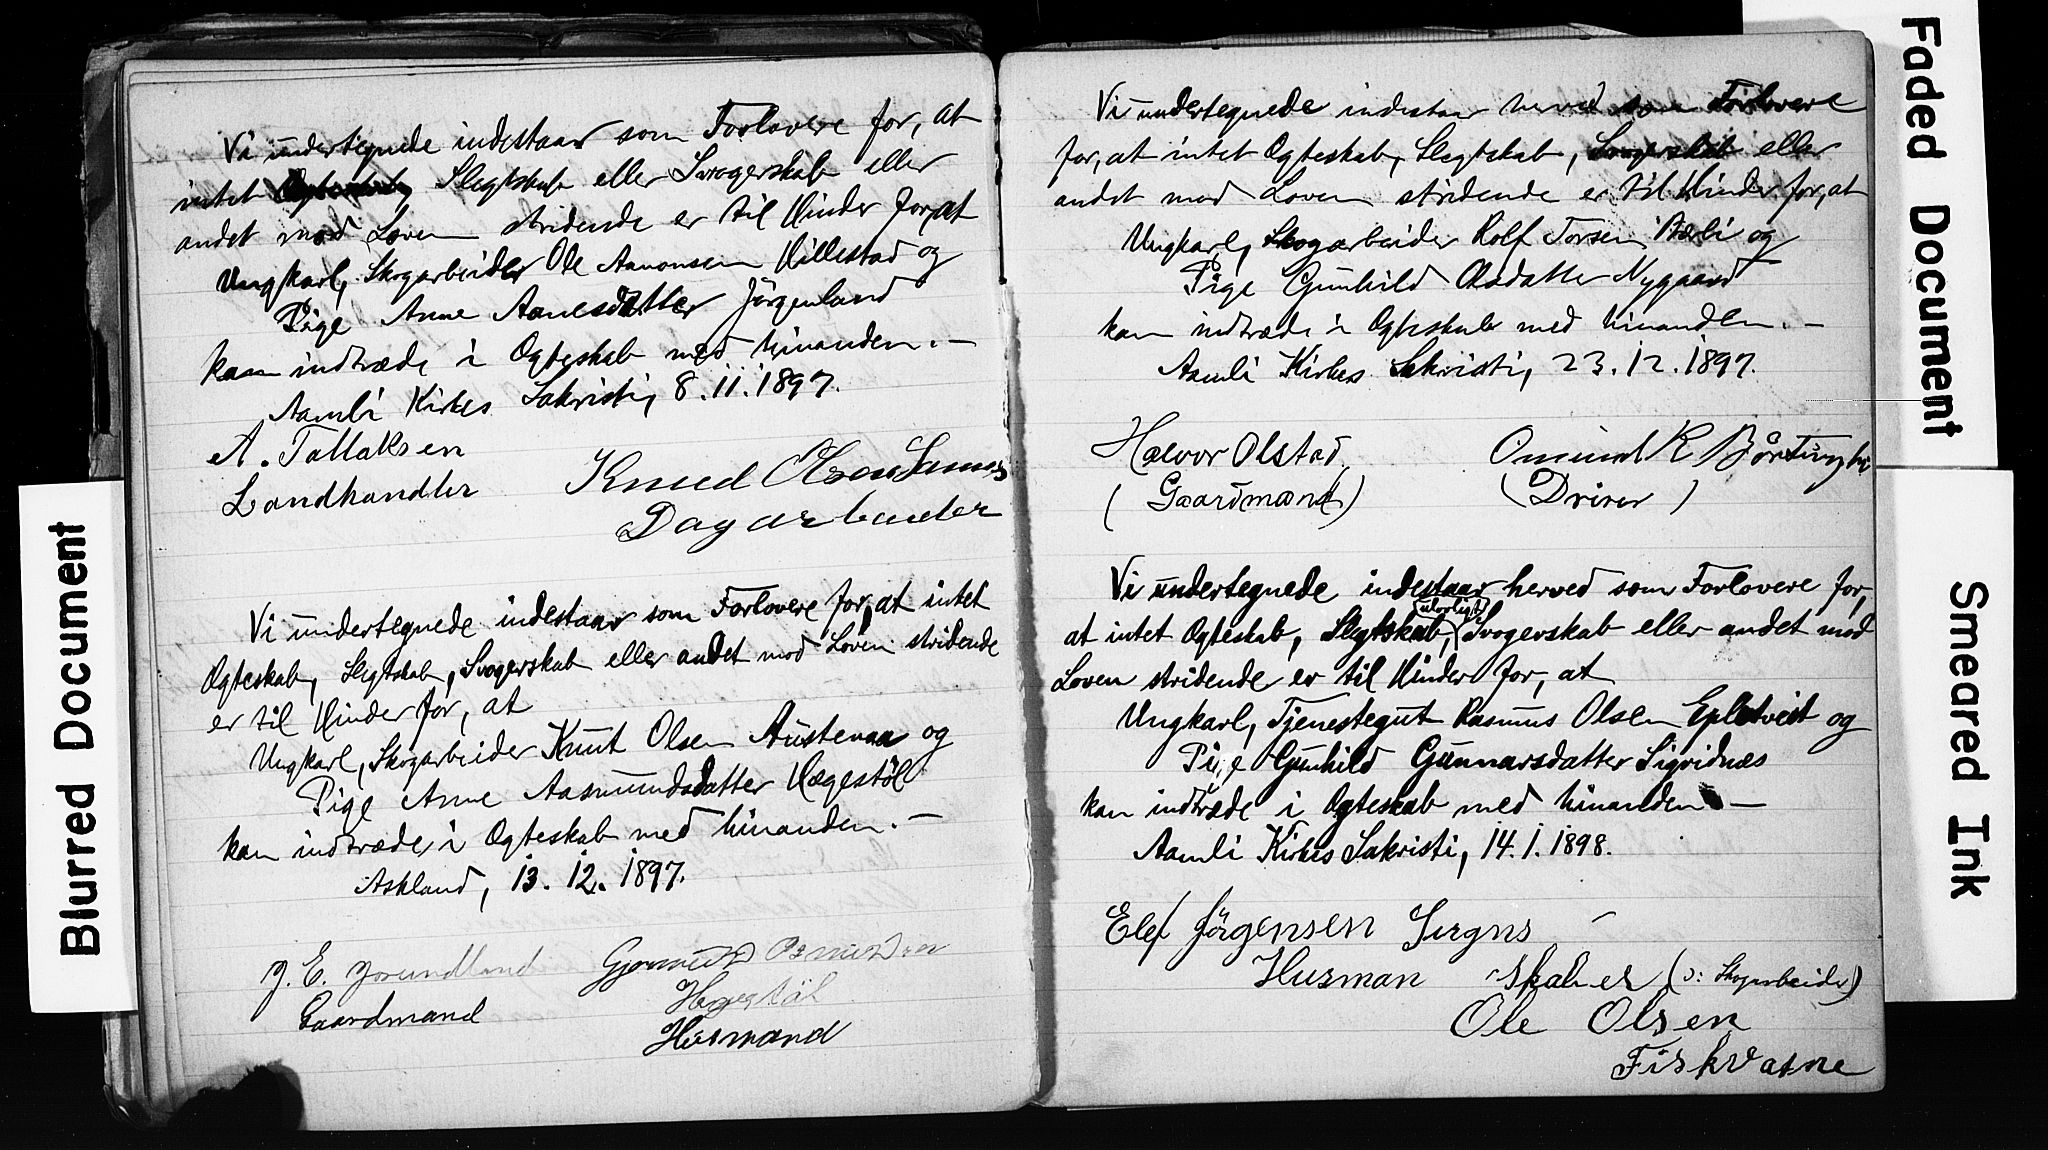 Vi undertegnede indestaar som Forlovere for, at
intet Slegtskab eller Svogerskab eller
andet mod Loven stridende er til Hinder for, at
Ungkarl, Skogarbeider Ole Aanonsen Hillestad og
Pige Anne Aanesdatter Jörgenland
kan indtræde i Ægteskab med hinanden. —
Aamli Kirkes Sakristi, 8.11.1897.
A. Tallaksen
Landhandler
Knud Olsen
Dagarbeider
Vi undertegnede indestaar som Forlovere for, at intet
Ægteskab, Slegtskab, Svogerskab eller andet mod Loven stridende
er til Hinder for, at
Ungkarl, Skogarbeider Knut Olsen Austenaa og
Pige Anne Aasmundsdatter Hægestöl
kan indtræde i Ægteskab med hinanden. —
Askland, 13.12.1897.
J. E. Jorundland
Gaardmand
Gjermund Osmundsen
Hegestöl
Husmand
Vi undertegnede indestaar herved som Forlovere
for, at intet Ægteskab, Slegtskab, Svogerskab eller
andet mod Loven stridende er til Hinder for, at
Ungkarl, Skogarbeider Rolf Torsen og
Pige Gunhild Olsdatter Nygaard
kan indtræde i Ægteskab med hinanden. —
Aamli Kirkes Sakristi, 23.12.1897.
Halvor Olstad
(Gaardmand)
Omund K
(Driver)
Vi undertegnede indestaar herved som Forlovere for,
at intet Ægteskab, Slegtskab, ulovligt Svogerskab eller andet mod
Loven stridende er til Hinder for, at
Ungkarl, Tjenestegut Rasmus Olsen Epletveit og
Pige Gunhild Gunnarsdatter Sigridnæs
kan indtræde i Ægteskab med hinanden —
Aamli Kirkes Sakristi, 14.1.1898.
Elef Jörgensen
Husman skaber (ɔ: Skogarbeider)
Ole Olsen
Fiskvatne
Blurred Document
Faded Document
Smeared Ink